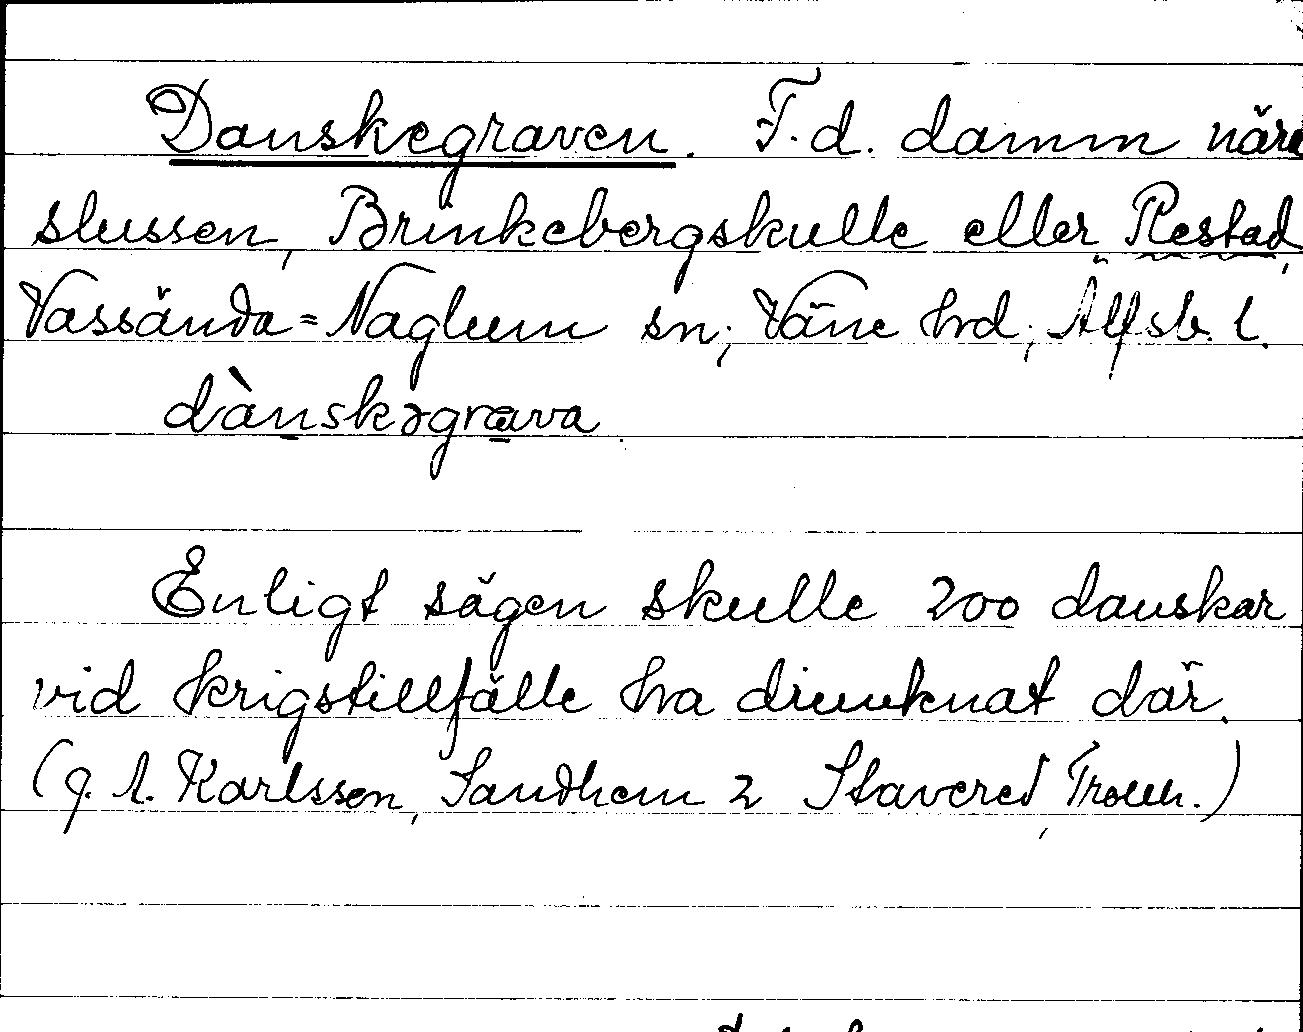 Danskegraven. F.d. damm nära
slussen, Brinkebergskulle eller Restad,
Vassända=Naglum sn; Väne hd; Älfsb. l.
dànskəgrava
Enligt sägen skulle 200 danskar
vid krigstillfälle ha drunknat där.
(g. A. Karlsson, Sandhem 2 Stavered, Trollh.)